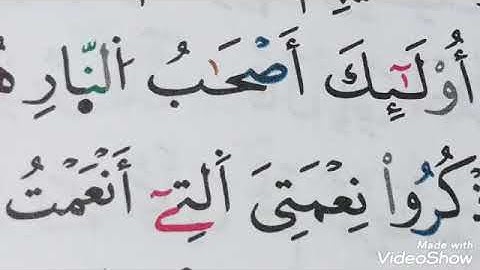 أُوْلَٰٓئِكَ أَصْحَٰبُ ٱلنَّارِ
كُرُواْ نِعْمَتِيَ ٱلَّتِيٓ أَنْعَمْتُ
Made with
VideoShow